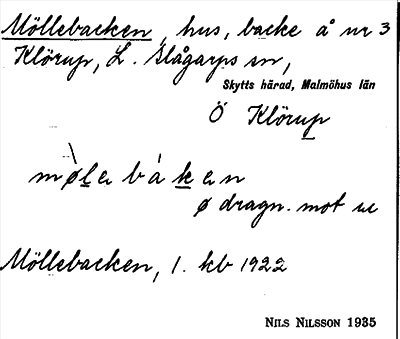 Möllebacken, hus, backe å nr 3
Klörup, L. Slågarps sn,
Skytts härad, Malmöhus län
Ö Klörup
møle báken
ø dragn. mot u
Möllebacken, 1. kb 1922
NILS NILSSON 1935